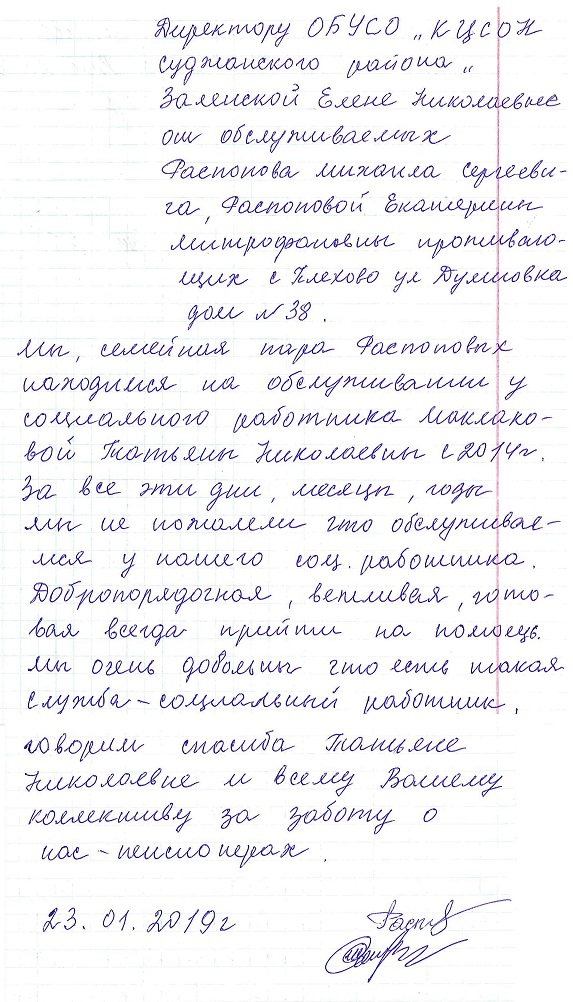 Директору ОБУСО „КЦСОН
Суджанского района„
Заленской Елене Николаевне
от обслуживаемых
Распопова Михаила Сергееви-
ча, Распоповой Екатерины
Митрофановны проживаю-
щих с Плехово ул Думновка
дом №38.
Мы, семейная пара Распоповых
находимся на обслуживании у
социального работника Маклако-
вой Татьяны Николаевны с 2014г.
За все эти дни, месяцы, годы
мы не пожалели что обслуживае-
мся у нашего соц. работника.
Добропорядочная, вежливая, гото-
вая всегда прийти на помощь.
Мы очень довольны что есть такая
служба-социальный работник,
говорим спасиба Татьяне
Николаевне и всему Вашему
коллективу за заботу о
нас-пенсионерах.
23.01.2019г